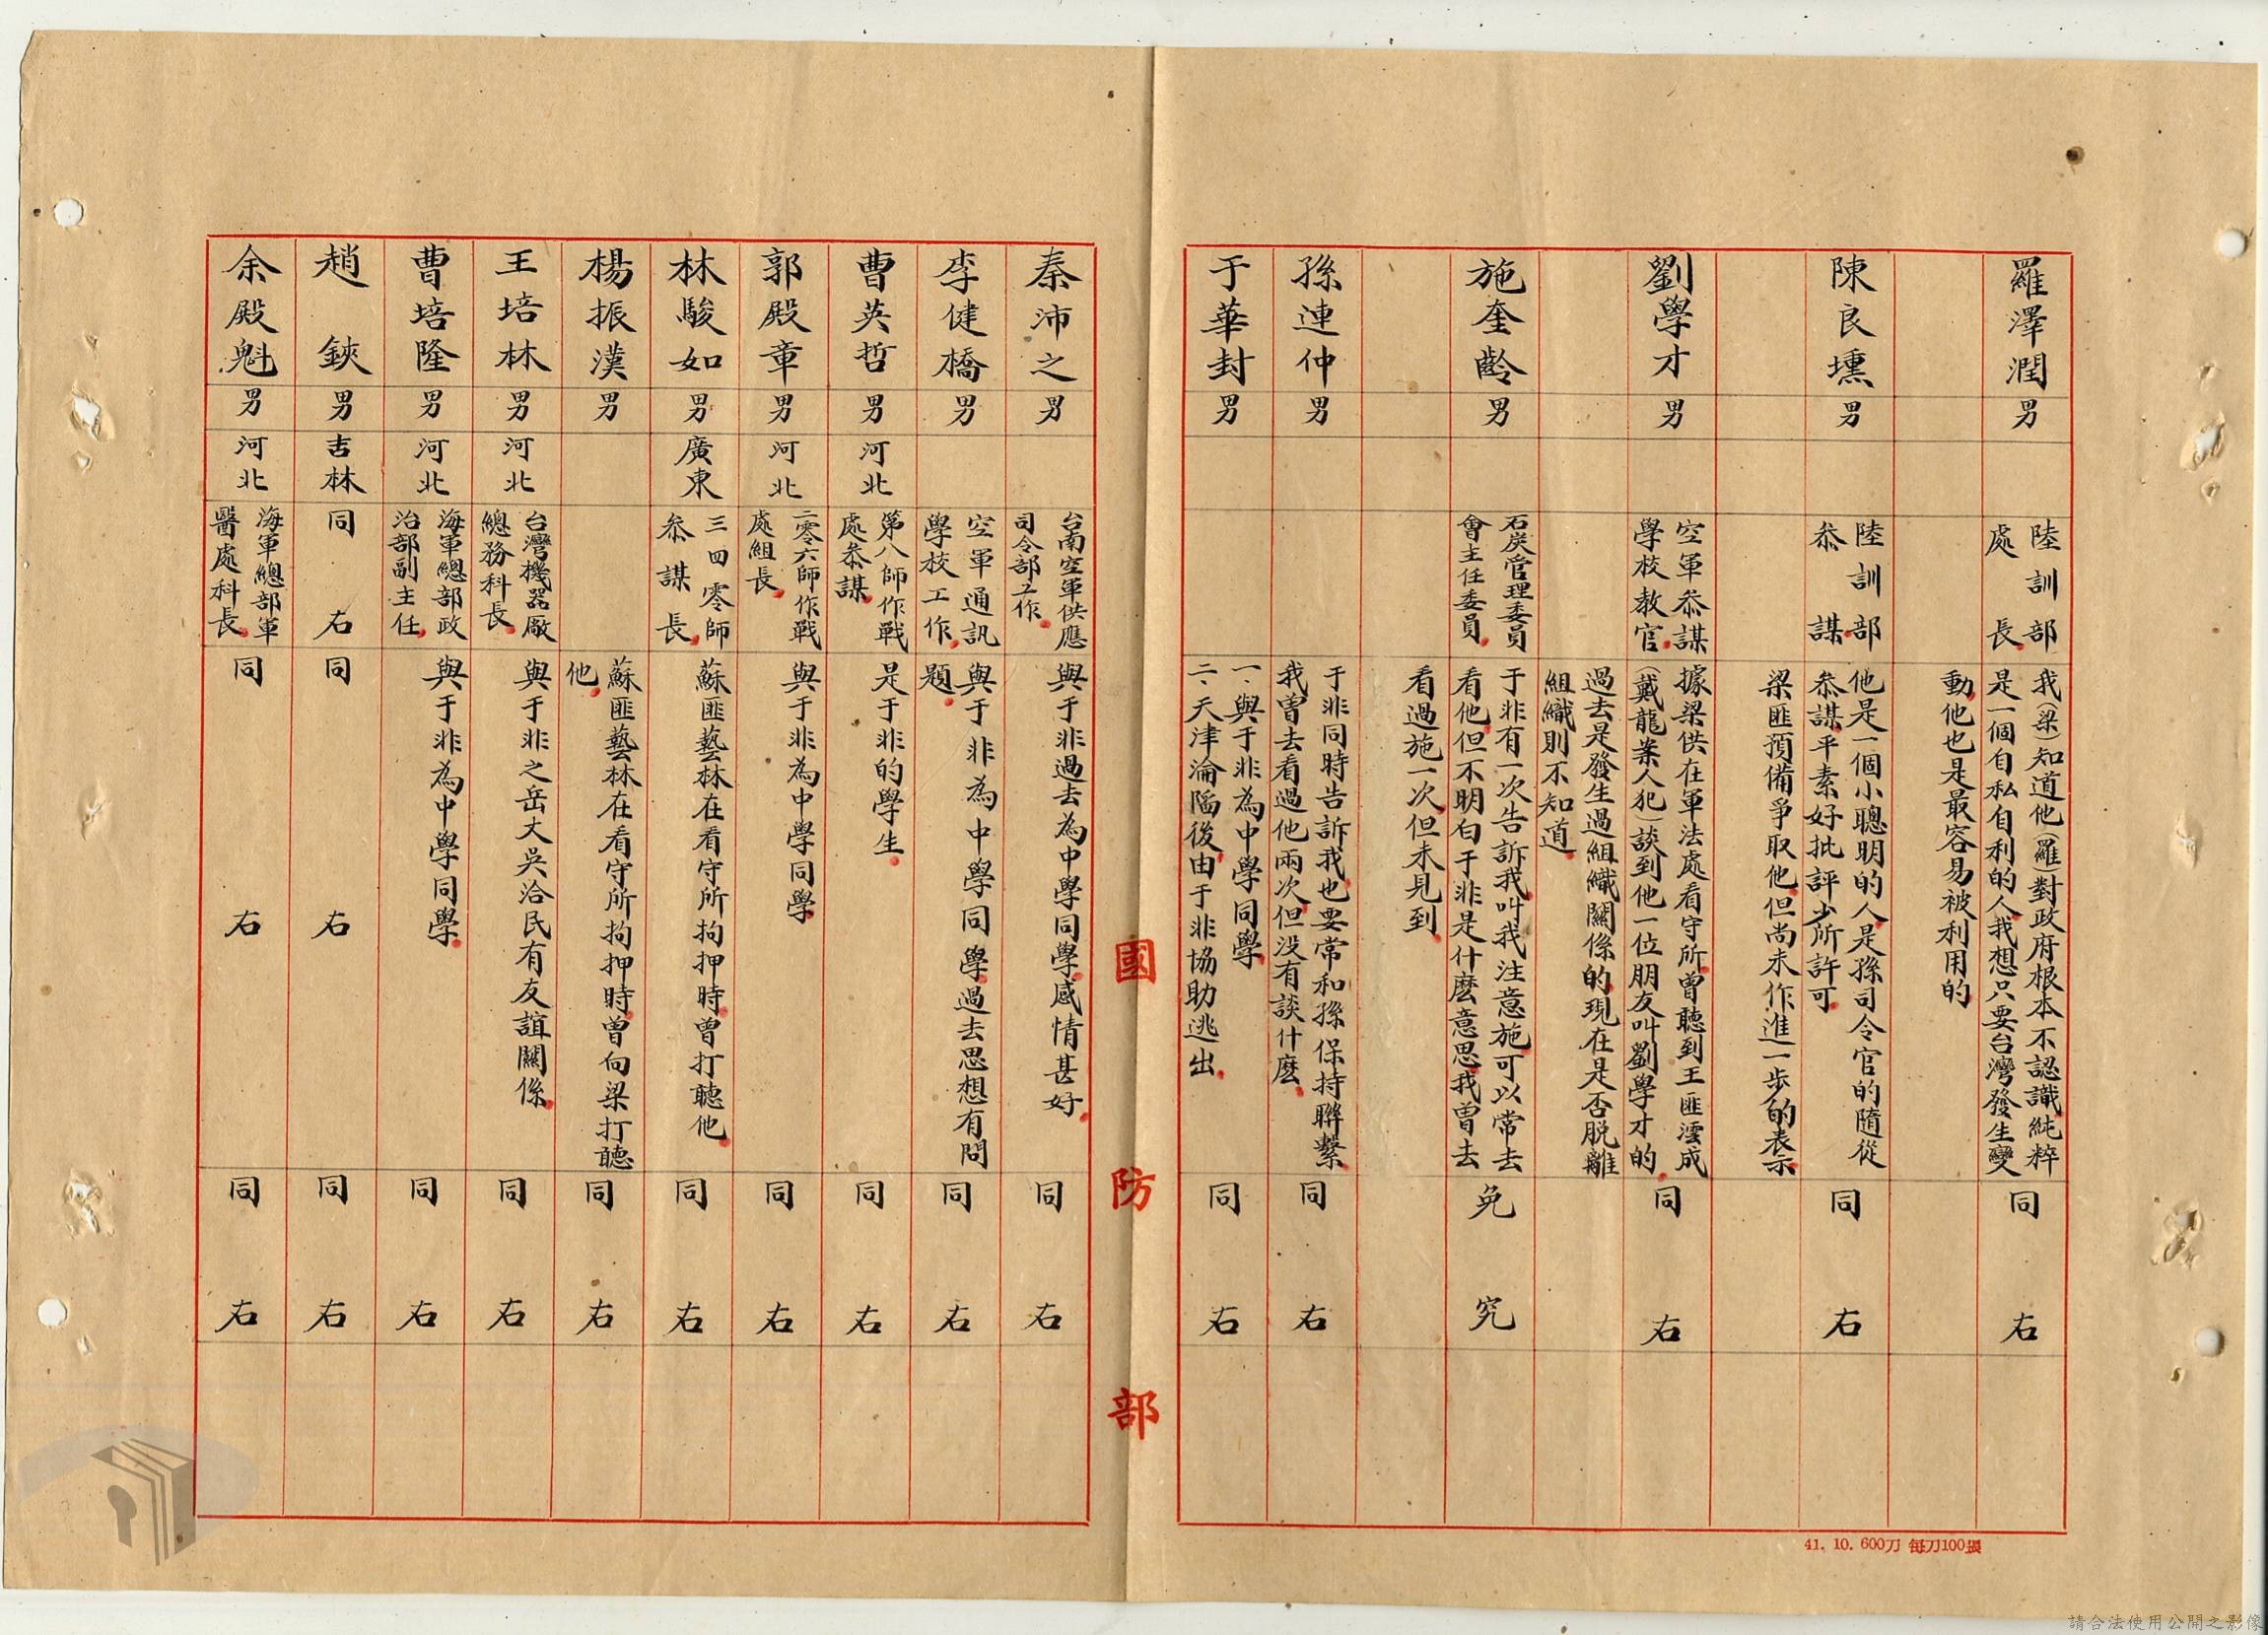 羅澤潤
男
陸訓部
處長
我(梁)知道他(羅)對政府根本不認識純粹
是一個自私自利的人我想只要台灣發生變
動他也是最容易被利用的
同右
陳良壎
男
陸訓部
參謀
他是一個小聰明的人是孫司令官的隨從
參謀平素好批評少所許可
梁匪預備爭取他但尚未作進一步的表示
同右
劉學才
男
空軍參謀
學校教官
據梁供在軍法處看守所曾聽到王匪澐成
(戴龍案人犯)談到他一位朋友叫劉學才的
過去是發生過組織關係的現在是否脫離
組織則不知道
同右
施奎齡
男
石炭管理委員
會主任委員
于非有一次告訴我叫我注意施可以常去
看他但不明白于非是什麽意思我曾去
看過施一次但未見到
免究
孫連仲
男
于非同時告訴我也要常和孫保持聯繫
我曾去看過他兩次但沒有談什麽
同右
于華封
男
一、與于非為中學同學
二、天津淪陷後由于非協助逃出
同右
國防部
秦沛之
男
台南空軍供應
司令部工作
與于非過去為中學同學感情甚好
同右
李健橋
男
空軍通訊
學校工作
與于非為中學同學過去思想有問
題
同右
曹英哲
男
河北
第八師作戰
處參謀
是于非的學生
同右
郭殿章
男
河北
二零六師作戰
處組長
與于非為中學同學
同右
林駿如
男
廣東
三四零師
參謀長
蘇匪藝林在看守所拘押時曾打聽他
同右
楊振漢
男
蘇匪藝林在看守所拘押時曾向梁打聽
他
同右
王培林
男
河北
台灣機器廠
總務科長
與于非之岳丈吳洽民有友誼關係
同右
曹培隆
男
河北
海軍總部政
治部副主任
與于非為中學同學
同右
趙鋏
男
吉林
同右
同右
同右
余殿魁
男
河北
海軍總部軍
醫處科長
同右
同右
41. 10. 600刀 每刀100張
請合法使用公開之影像